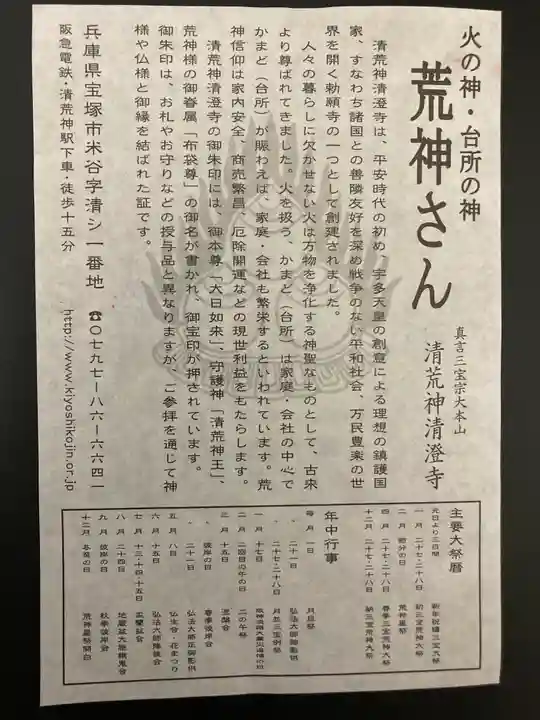 火の神・台所の神
荒神さん
真言三宝宗大本山
清荒神清澄寺
清荒神清澄寺は、平安時代の初め、宇多天皇の創意による理想の鎮護国
家、すなわち諸国との善隣友好を深め戦争のない平和社会、万民豊楽の世
界を開く勅願寺の一つとして創建されました。
人々の暮らしに欠かせない火は万物を浄化する神聖なものとして、古来
より尊ばれてきました。火を扱う、かまど（台所）は家庭・会社の中心で
かまど（台所）が賑わえば、家庭・会社も繁栄するといわれています。荒
神信仰は家内安全、商売繁昌、厄除開運などの現世利益をもたらします。
清荒神清澄寺の御朱印には、御本尊「大日如来」、守護神「清荒神王」、
荒神様の御眷属「布袋尊」の御名が書かれ、御宝印が押されています。
御朱印は、お札やお守りなどの授与品と異なりますが、ご参拝を通じて神
様や仏様と御縁を結ばれた証です。
兵庫県宝塚市米谷字清シ一番地 ☎〇七九七ー八六ー六六四一
阪急電鉄・清荒神駅下車・徒歩十五分 http://www.kiyoshikojin.or.jp
主要大祭暦
元日より三日間 新年祝祷三宝大祭
一月 二十七・二十八 初三宝荒神大祭
二月 節分の日 荒神星祭
四月 二十七・二十八 春季三宝荒神大祭
十二月 二十七・二十八 納三宝荒神大祭
年中行事
毎月 一日 月旦祭
〃 二十一日 弘法大師御影供
〃 二十七・二十八 月並三宝例祭
一月 十七日
二月 二回目の午の日 二の午祭
三月 十五日 涅槃会
〃 彼岸の日 春季彼岸会
〃 二十一日 弘法大師正御影供
五月 八日 仏生会・花まつり
六月 十五日 弘法大師降誕会
七月 十三・十四・十五日 盂蘭盆会
八月 二十四日 地蔵盆大施餓鬼会
九月 彼岸の日 秋季彼岸会
十二月 冬至の日 荒神星祭開白